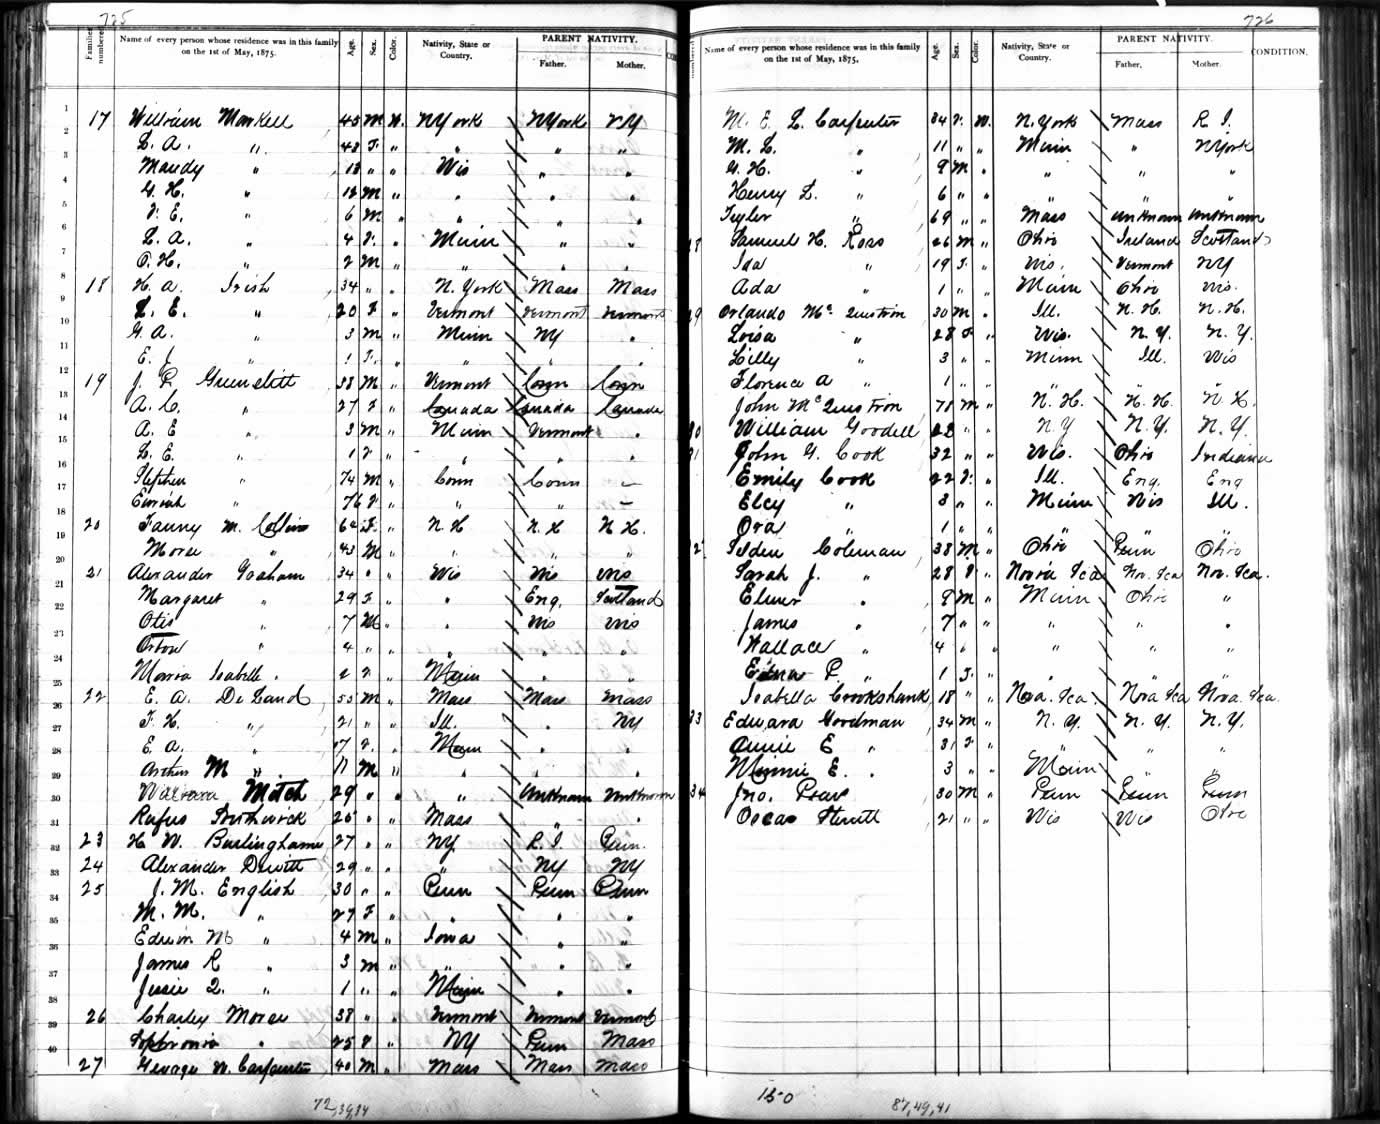 725
Families numbered. Name of every person whose residence was in this family on the 1st of May, 1875. Age. Sex. Color. Nativity, State or Country. PARENT NATIVITY. Father. Mother.
1 17 William Markell 45 M W. NYork NYork NY
2 L. A. " 48 F. " " " "
3 Maudy " 18 " " Wis " "
4 G. H. " 12 M " " " "
5 F. E. " 6 M " " " "
6 L. A. " 4 F. " Minn " "
7 O. H. " 2 M " " " "
8 18 H. A. Irish 34 " " N. York Mass Mass
9 L. E. " 20 F " Vermont Vermont Vermont
10 G. A. " 3 M " Minn NY "
11 E. J. " 1 F. " " " "
12 19 J. P. Greenslitt 33 M " Vermont Conn Conn
13 A. C. " 27 F " Canada Canada Canada
14 A. E " 3 M " Minn Vermont "
15 L. E. " 1 F " " " "
16 Stephen " 74 M " Conn Conn –
17 " 76 F " " " –
18 20 Fanny M. Collins 62 F. " N. H N. H N H.
19 Morse " 43 M " " " "
20 21 Alexander Graham 34 " " Wis Wis Wis
21 Margaret " 29 F " " Eng. Scotland
22 Otis " 7 M " " Wis Wis
23 Orton " 4 " " " " "
24 Maria Isabelle " 2 F " Minn " "
25 22 E. A. De Land 55 M " Mass Mass Mass
26 F. H. " 21 " " Ill. " NY
27 E. A. " 17 F. " Minn " "
28 Arthur M " 11 M " " " "
29 Mitch 29 " " " Unknown Unknown
30 Rufus 25 " " Mass " "
31 23 H W. Burlinghame 27 " " NY. R. I. Penn.
32 24 Alexander Dewitt 29 " " " NY NY
33 25 J. M. English 30 " " Penn Penn Penn
34 M. M. " 27 F " " " "
35 Edwin M " 4 M " Iowa " "
36 James R " 3 M " " " "
37 Jessie L. " 1 " " Minn " "
38 26 Charley Morse 38 " " Vermont Vermont Vermont
39 Sophronia " 25 F " NY Penn Mass
40 27 George W. Carpenter 40 M " Mass Mass Mass
72,39,34
726
Name of every person whose residence was in this family on the 1st of May, 1875. Age. Sex. Color. Nativity, State or Country. PARENT NATIVITY. Father. Mother. CONDITION.
M. E. L. Carpenter 34 F. W. N. York Mass R I.
M. L. " 11 " " Minn " NYork
G. H. " 9 M " " " "
Henry L. " 6 " " " " "
Tyler " 69 " " Mass Unknown Unknown
8 Samuel H. Ross 26 M " Ohio Ireland Scotland
Ida " 19 F. " Wis. Vermont NY
Ada " 1 " " Minn Ohio Wis.
9 Orlando Mc Quistion 30 M " Ill. N. H. N. H.
Loisa " 28 F " Wis. N. Y. N. Y.
Lilly " 3 " " Minn Ill. Wis
Florence A " 1 " " " " "
John Mc Quistion 71 M " N. H. N. H. N. H.
30 William Goodell 22 " " N. Y N. Y. N. Y.
31 John G. Cook 32 " " Wis. Ohio Indiana
Emily Cook 22 F. " Ill. Eng. Eng
Elcy " 3 " " Minn Wis Ill.
Ora " 1 " " " " "
2 Selden Coleman 38 M " Ohio Penn Ohio
Sarah J. " 28 F " Novia Sca Nov. Sca Nov. Sca.
Elmer " 9 M " Minn Ohio "
James " 7 " " " " "
Wallace " 4 " " " " "
Edna P. " 1 F. " " " "
Isabella Crookshank 18 " " Nova. Sca. Nova Sca Nova. Sca.
33 Edward Goodman 34 M " N. Y. N. Y. N. Y.
Annie E " 31 F " " " "
Minnie E. " 3 " " Minn " "
34 Jno. 30 M " Penn Penn Penn
21 " " Wis Wis Ohio
150
87,49,41